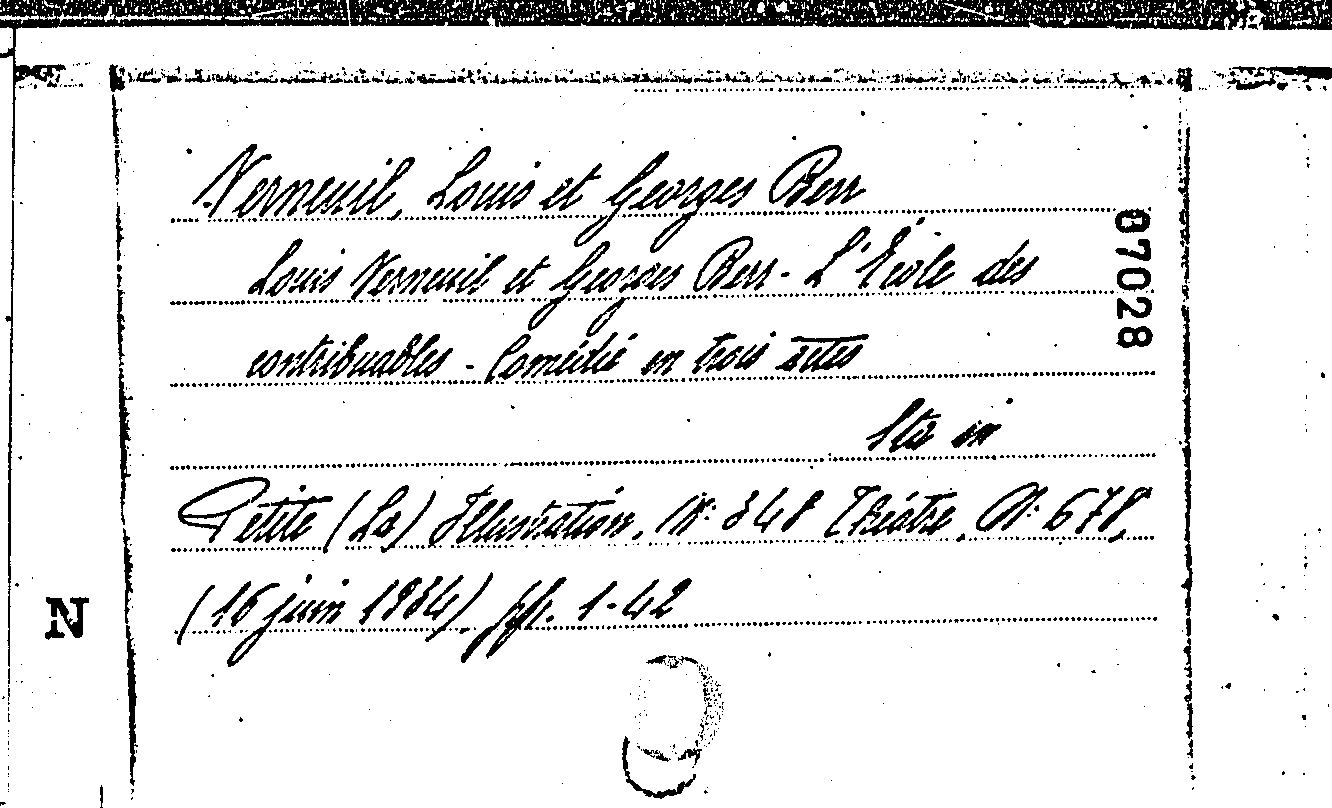 Verneuil, Louis et Georges Berr
Louis Verneuil et Georges Berr - L'École des
contribuables - Comédie en trois actes
Sta in
Petite (La) Illustration, N: 348 Théâtre, N: 678,
(16 juin 1934) pp. 1-42
N